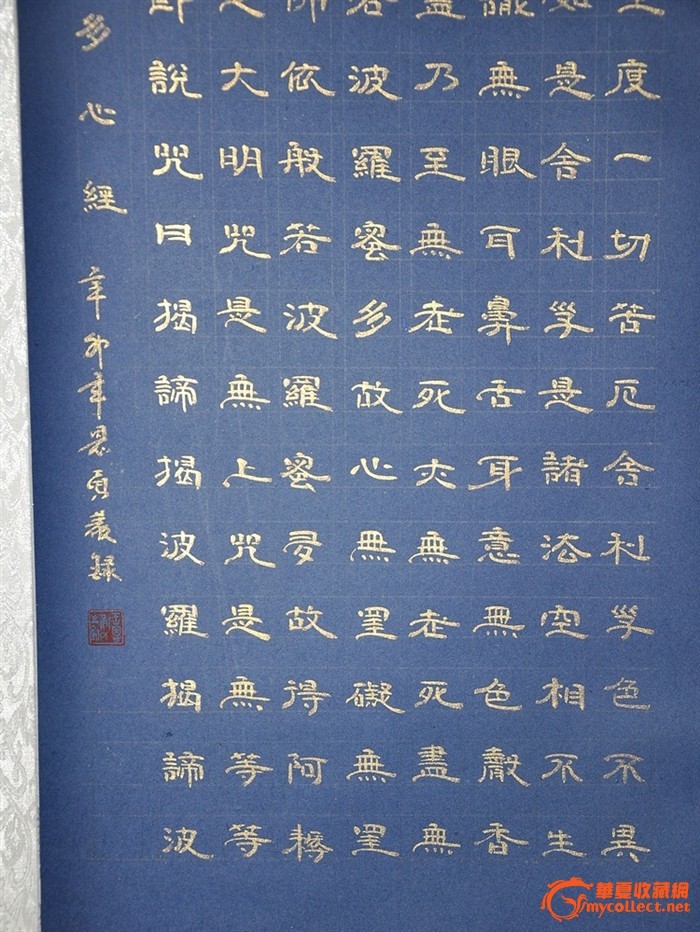 度一切苦厄舍利子色不異
如是舍利子是諸法空相不生
識無眼耳鼻舌身意無色聲香
盡乃至無老死亦無老死盡無
若波羅蜜多故心無罣礙無罣
依般若波羅蜜多故得阿耨
大明咒是無上咒是無等等
即說咒曰揭諦揭波羅揭諦波
多心經
辛卯年敬錄
華夏收藏網
mycollect.net